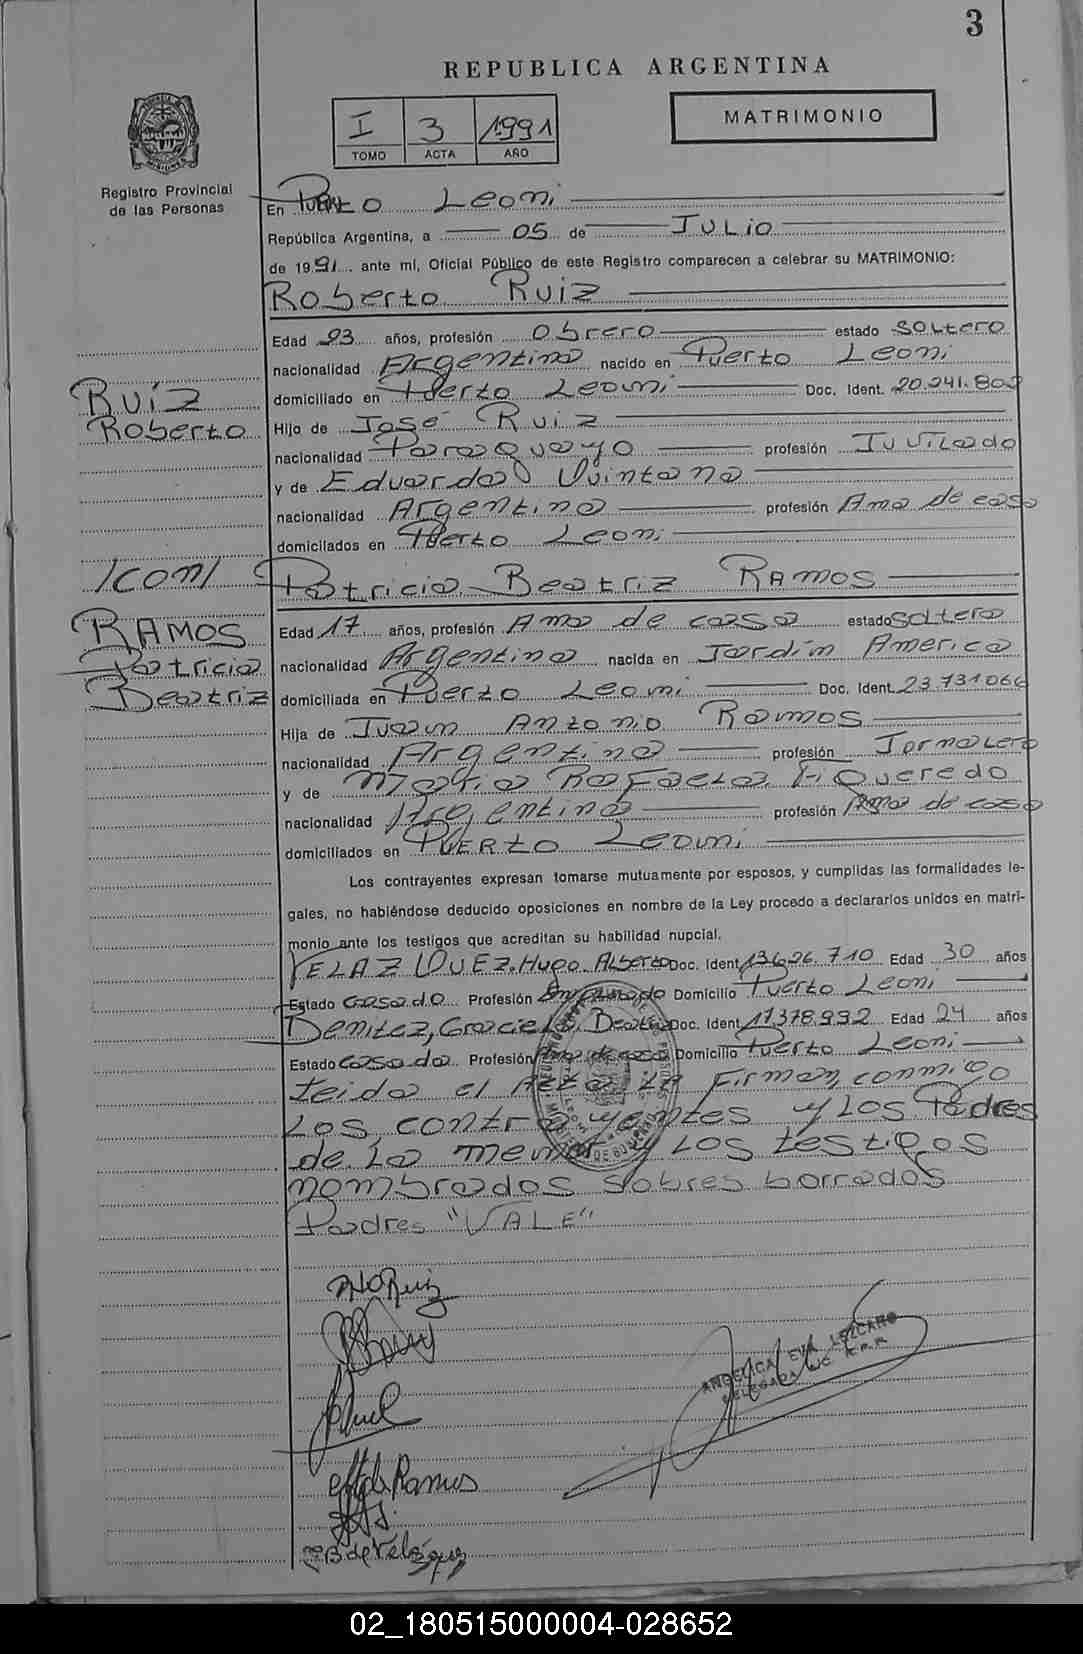 3
REPUBLICA ARGENTINA
I 3 1991
TOMO ACTA AÑO
MATRIMONIO
Registro Provincial
de las Personas
En Puerto Leoni
República Argentina, a 05 de JULIO
de 1991 ante mí, Oficial Público de este Registro comparecen a celebrar su MATRIMONIO:
Roberto Ruiz
Edad 23 años, profesión Obrero estado SOLtero
nacionalidad Argentina nacido en Puerto Leoni
domiciliado en Puerto Leoni Doc. Ident. 20.241.809
Ruiz
Roberto
Hijo de José Ruiz
nacionalidad Paraguayo profesión Juvilado
y de Eduarda Quintana
nacionalidad Argentina profesión Ama de casa
domiciliados en Puerto Leoni
/con/
Patricia Beatriz RAMOS
RAMOS
Patricia
Beatriz
Edad 17 años, profesión Ama de casa estado SOLtera
nacionalidad Argentina nacida en Jardín America
domiciliada en Puerto Leoni Doc. Ident. 23.731.066
Hija de Juan Antonio Ramos
nacionalidad Argentina profesión Jornalero
y de Maria Rafaela Figueredo
nacionalidad Argentina profesión Ama de casa
domiciliados en PUERTO Leoni
Los contrayentes expresan tomarse mutuamente por esposos, y cumplidas las formalidades le-
gales, no habiéndose deducido oposiciones en nombre de la Ley procedo a declararlos unidos en matri-
monio ante los testigos que acreditan su habilidad nupcial.
VELAZQUEZ, Hugo Alberto Doc. Ident. 13.626.710 Edad 30 años
Estado Casado Profesión Empleado Domicilio Puerto Leoni
Benitez, Graciela Beatriz Doc. Ident. 17.378.992 Edad 24 años
Estado Casada Profesión Ama de casa Domicilio Puerto Leoni
leida el Acta la Firman, conmigo
Los contrayentes y Los Padres
de La menor y Los testigos
nombrados sobres borrados
Padres "VALE"
Ruiz
ANGELICA EVA LEZCANO
DELEGADA R.P.P.
Ramos
B de Velázquez
02_180515000004-028652